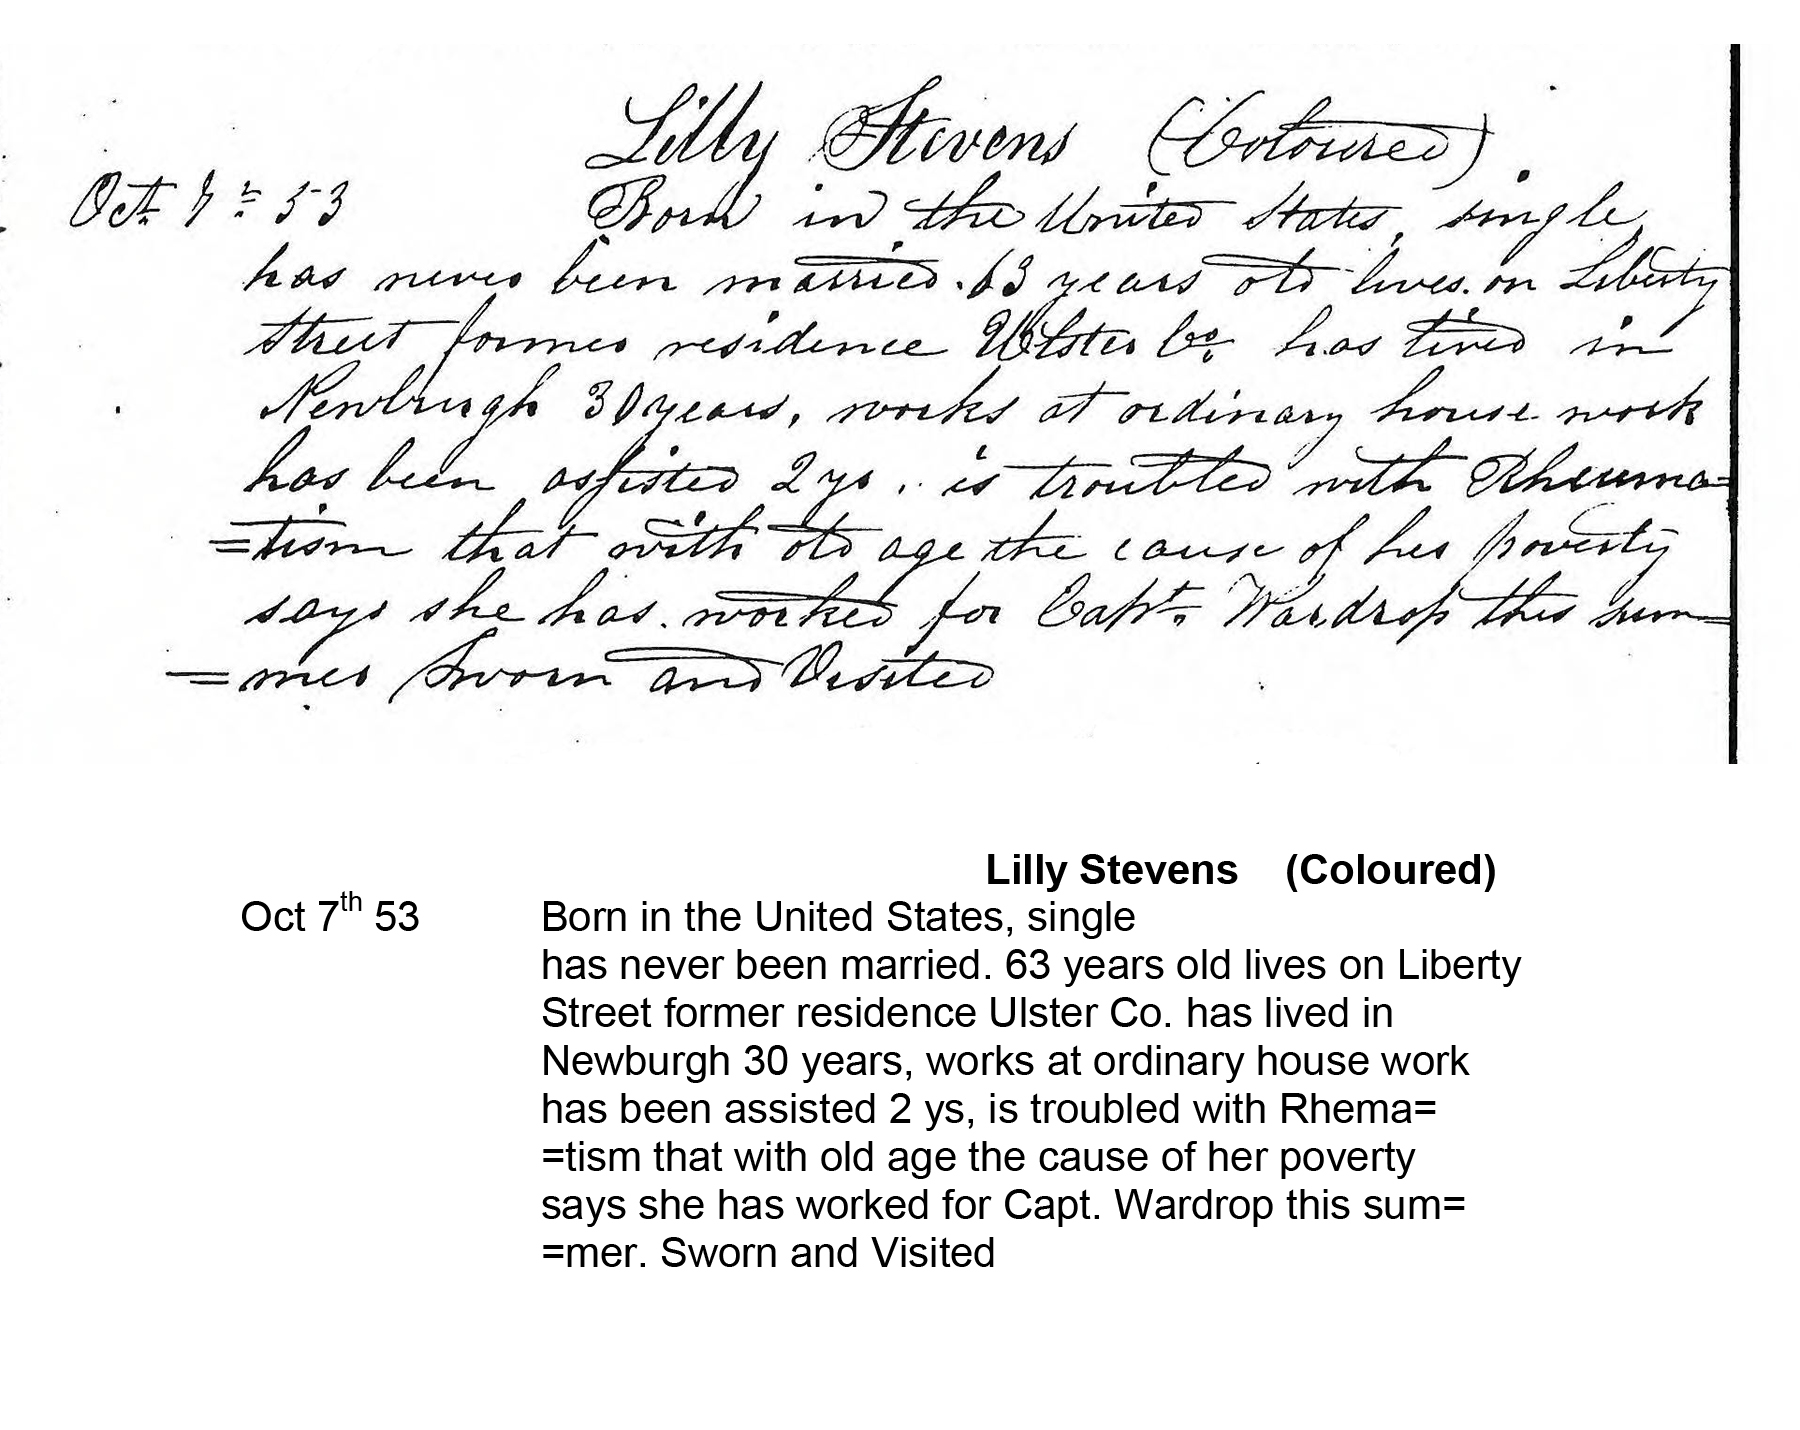 Lilly Stevens (Coloured)
Oct. 7th 53 Born in the United States, single,
has never been married. 63 years old lives on Liberty
Street former residence Ulster Co. has lived in
Newburgh 30 years, works at ordinary house work
has been assisted 2 ys. is troubled with Rheuma=
=tism that with old age the cause of her poverty
says she has worked for Capt. Wardrop this sum=
=mer Sworn and Visited
Lilly Stevens (Coloured)
Oct 7th 53 Born in the United States, single
has never been married. 63 years old lives on Liberty
Street former residence Ulster Co. has lived in
Newburgh 30 years, works at ordinary house work
has been assisted 2 ys, is troubled with Rhema=
=tism that with old age the cause of her poverty
says she has worked for Capt. Wardrop this sum=
=mer. Sworn and Visited